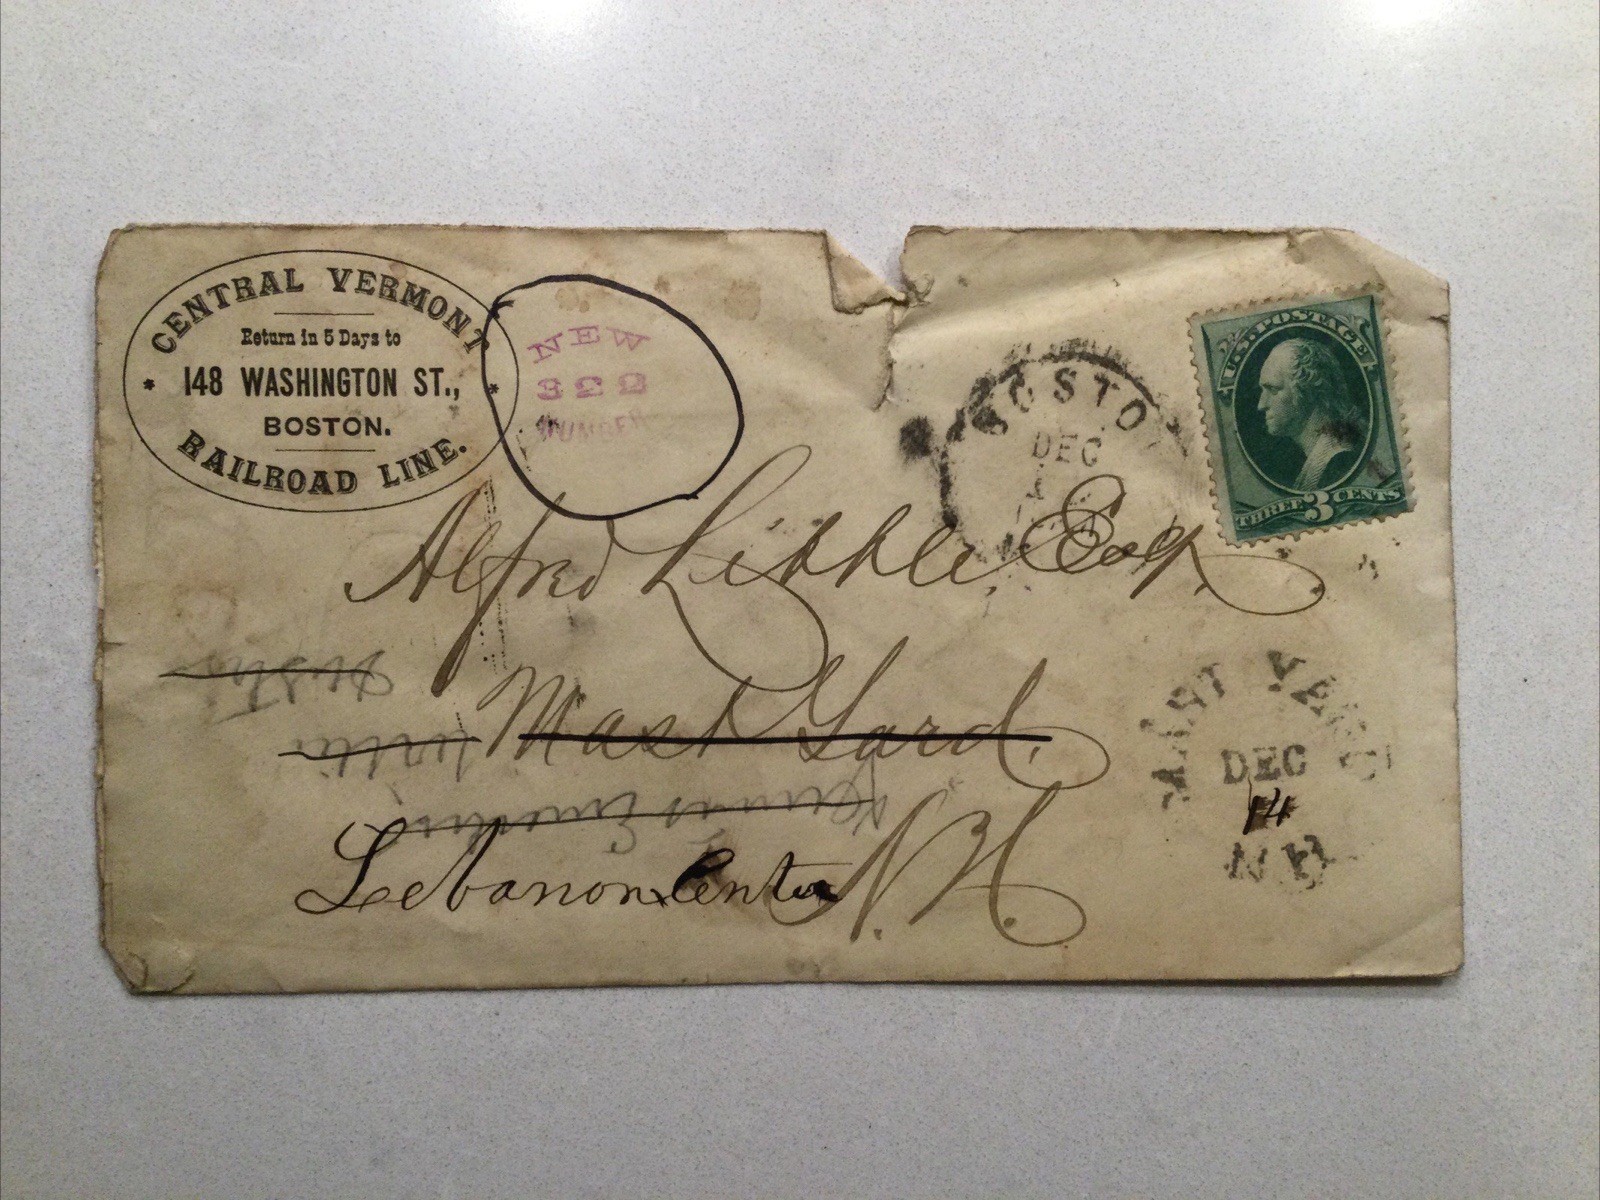 CENTRAL VERMONT
Return in 5 Days to
148 WASHINGTON ST.,
BOSTON.
RAILROAD LINE.
NEW
322
NUMBER
BOSTON
DEC
U.S. POSTAGE
THREE 3 CENTS
Alfred Little, Esq.
Mast Yard.
Lebanon Center N.H.
MAST YARD
DEC
14
N.H.